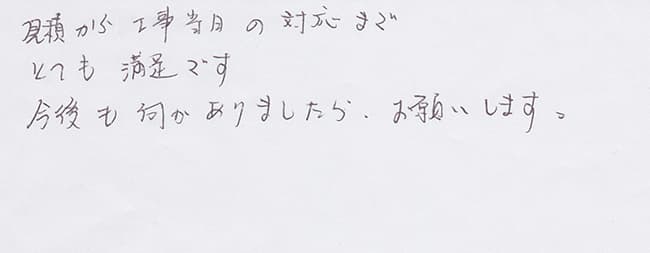 見積から工事当日の対応まで
とても満足です
今後も何かありましたら、お願いします。